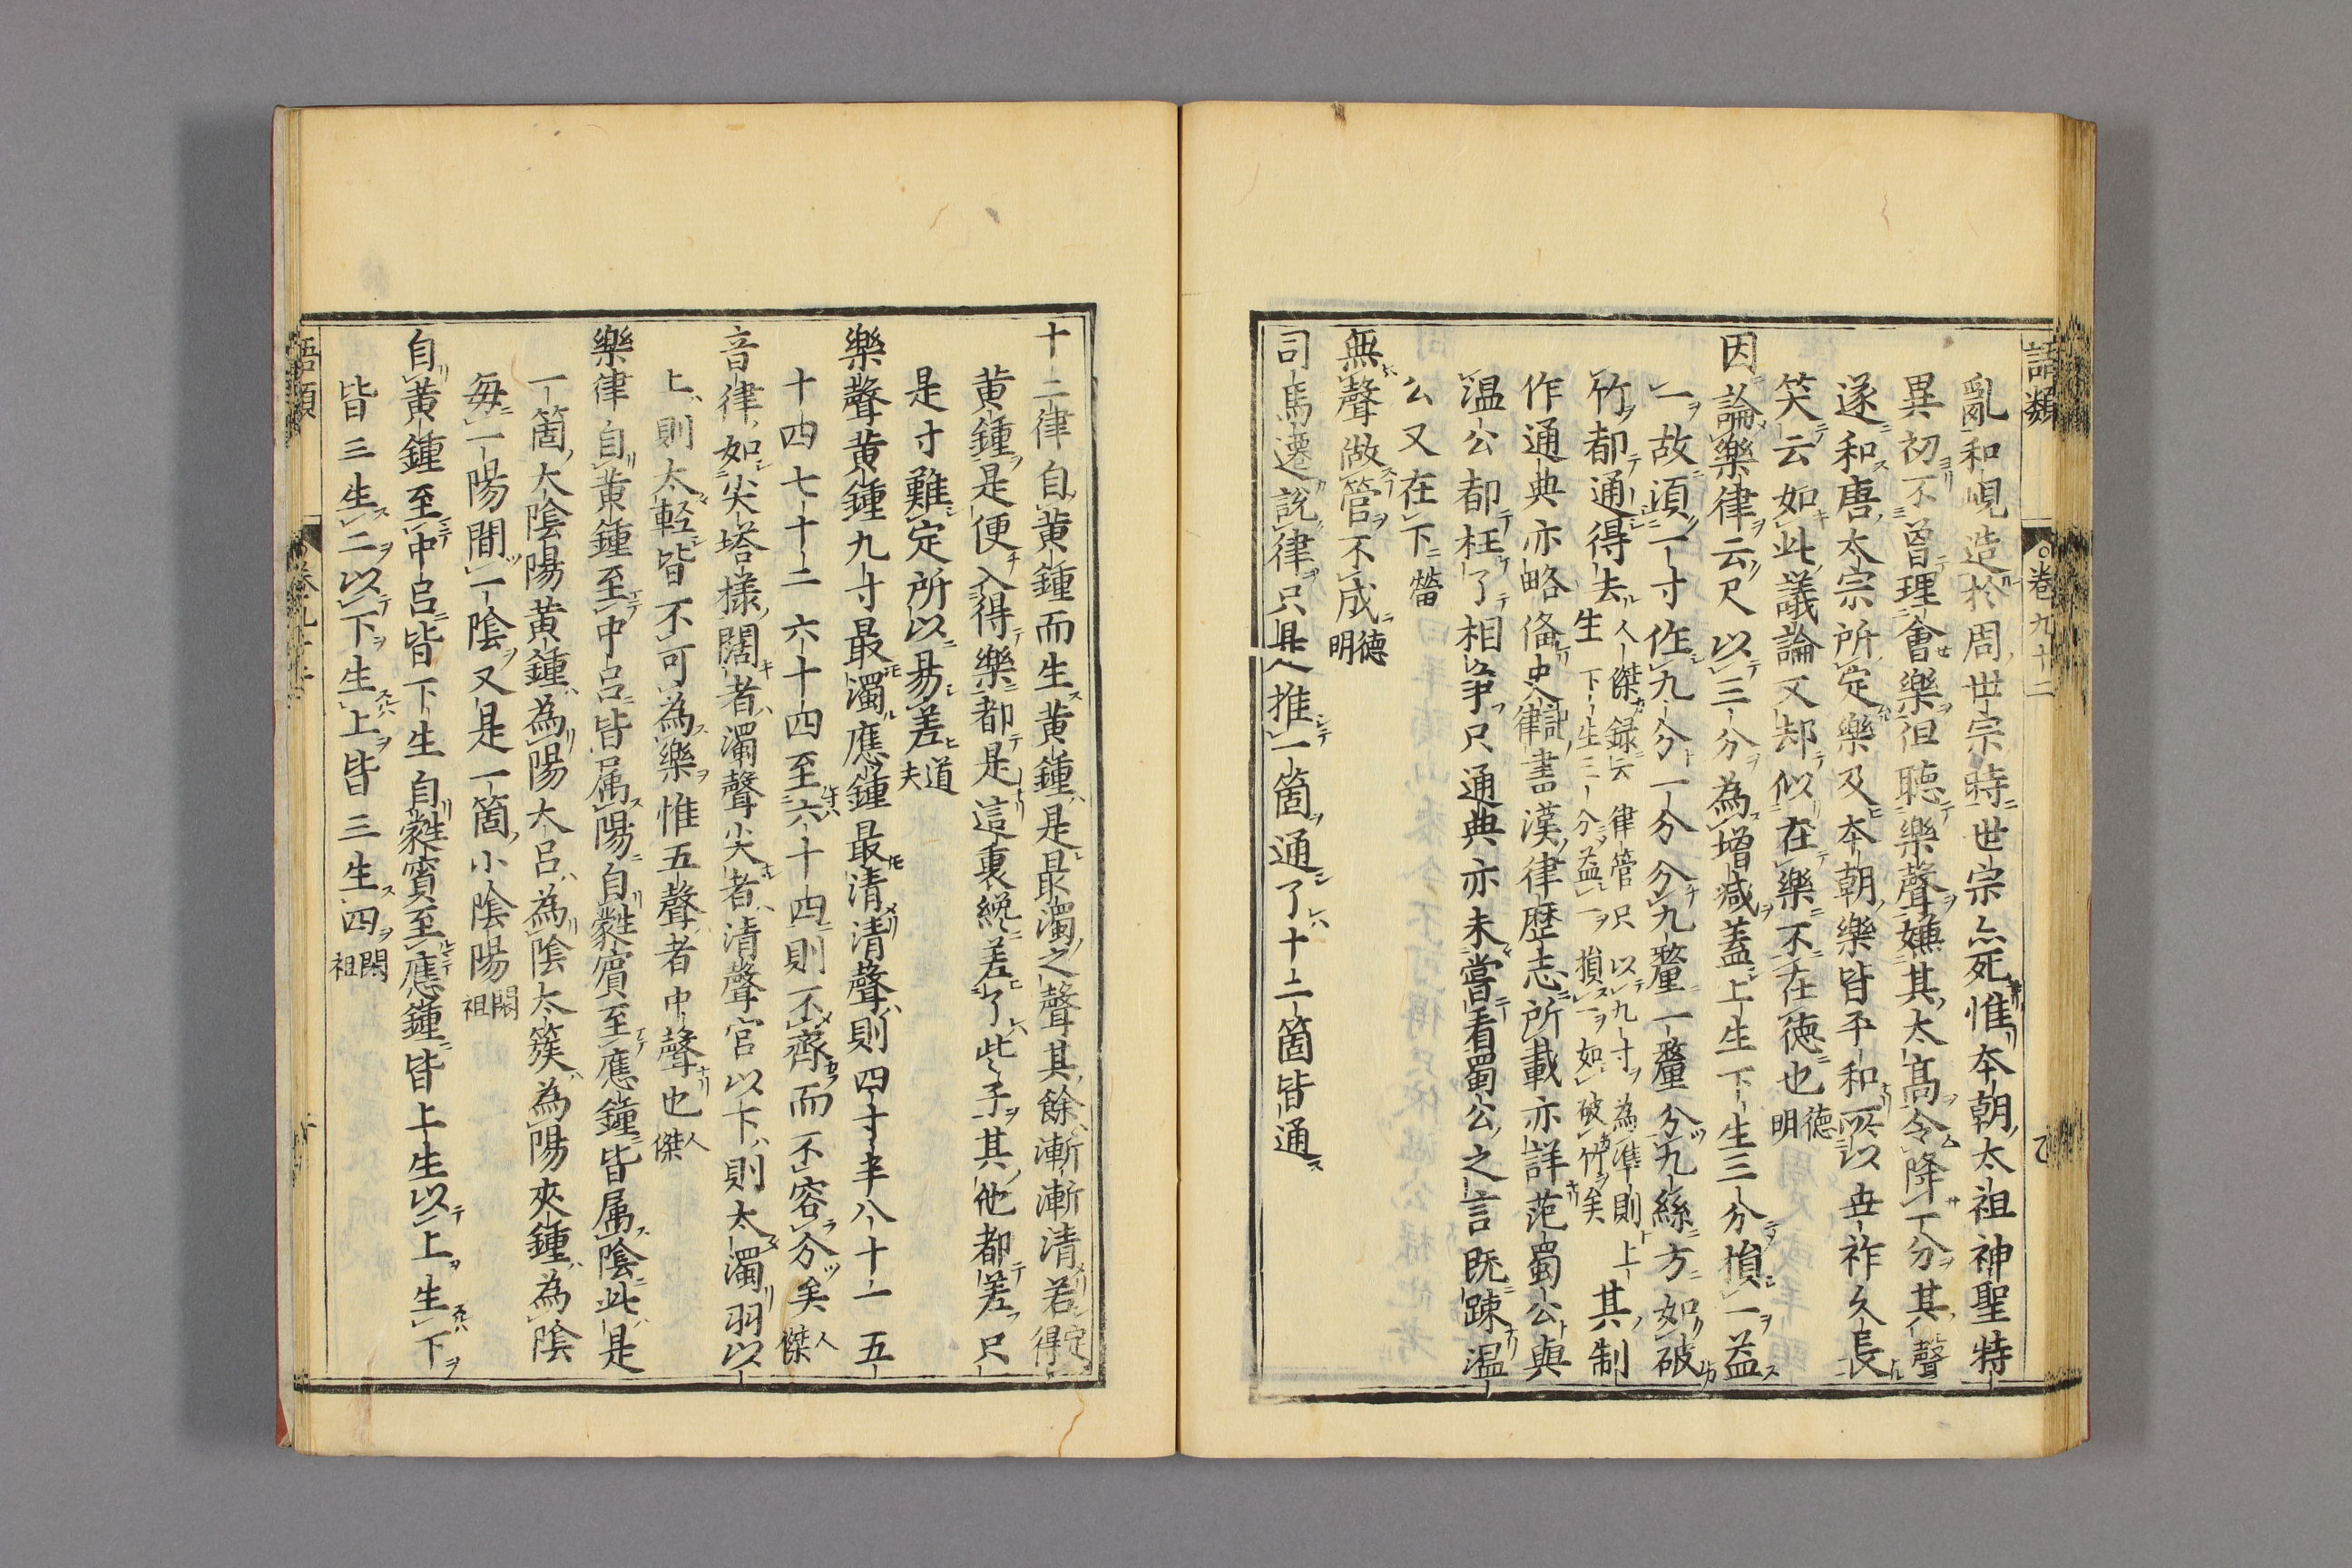 語類
卷九十二
七
亂和峴造於周世宗時世宗亦死惟本朝太祖神聖特
異初不曽理會樂但聽樂聲嫌其太髙令降一分其聲
遂和唐太宗所定樂及本朝樂皆平和所以世祚久長
笑云如此議論又却似在樂不在徳也德明
因論樂律云尺以三分為増減蓋上生下生三分損一益
一故湏一寸作九分一分分九釐一釐分九絲方如破
竹都通得去人傑録云律管只以九寸為準則上生下生三分益一損一如破竹矣其制
作通典亦略俻史記律書漢律歴志所載亦詳范蜀公與
温公都枉了相爭只通典亦未嘗看蜀公之言既踈温
公又在下㽦
無聲做管不成德明
司馬遷說律只是推一箇通了十二箇皆通
十二律自黃鍾而生黃鍾是最濁之聲其餘漸漸清若定得
黄鍾是便入得樂都是這裏纔差了些子其他都差只
是寸難定所以易差道夫
樂聲黄鍾九寸最濁應鍾最清清聲則四寸半八十一五
十四七十二六十四至六十四則不齊而不容分矣人傑
音律如尖塔様闊者濁聲尖者清聲宫以下則太濁羽以
上則太輕皆不可為樂惟五聲者中聲也人傑
樂律自黃鍾至中呂皆属陽自蕤賔至應鐘皆属陰此是
一箇大陰陽黄鍾為陽大呂為陰太簇為陽夾鍾為陰
毎一陽間一陰又是一箇小陰陽閎祖
自黄鍾至中呂皆下生自蕤賔至應鐘皆上生以上生下
皆三生二以下生上皆三生四閎祖
語類